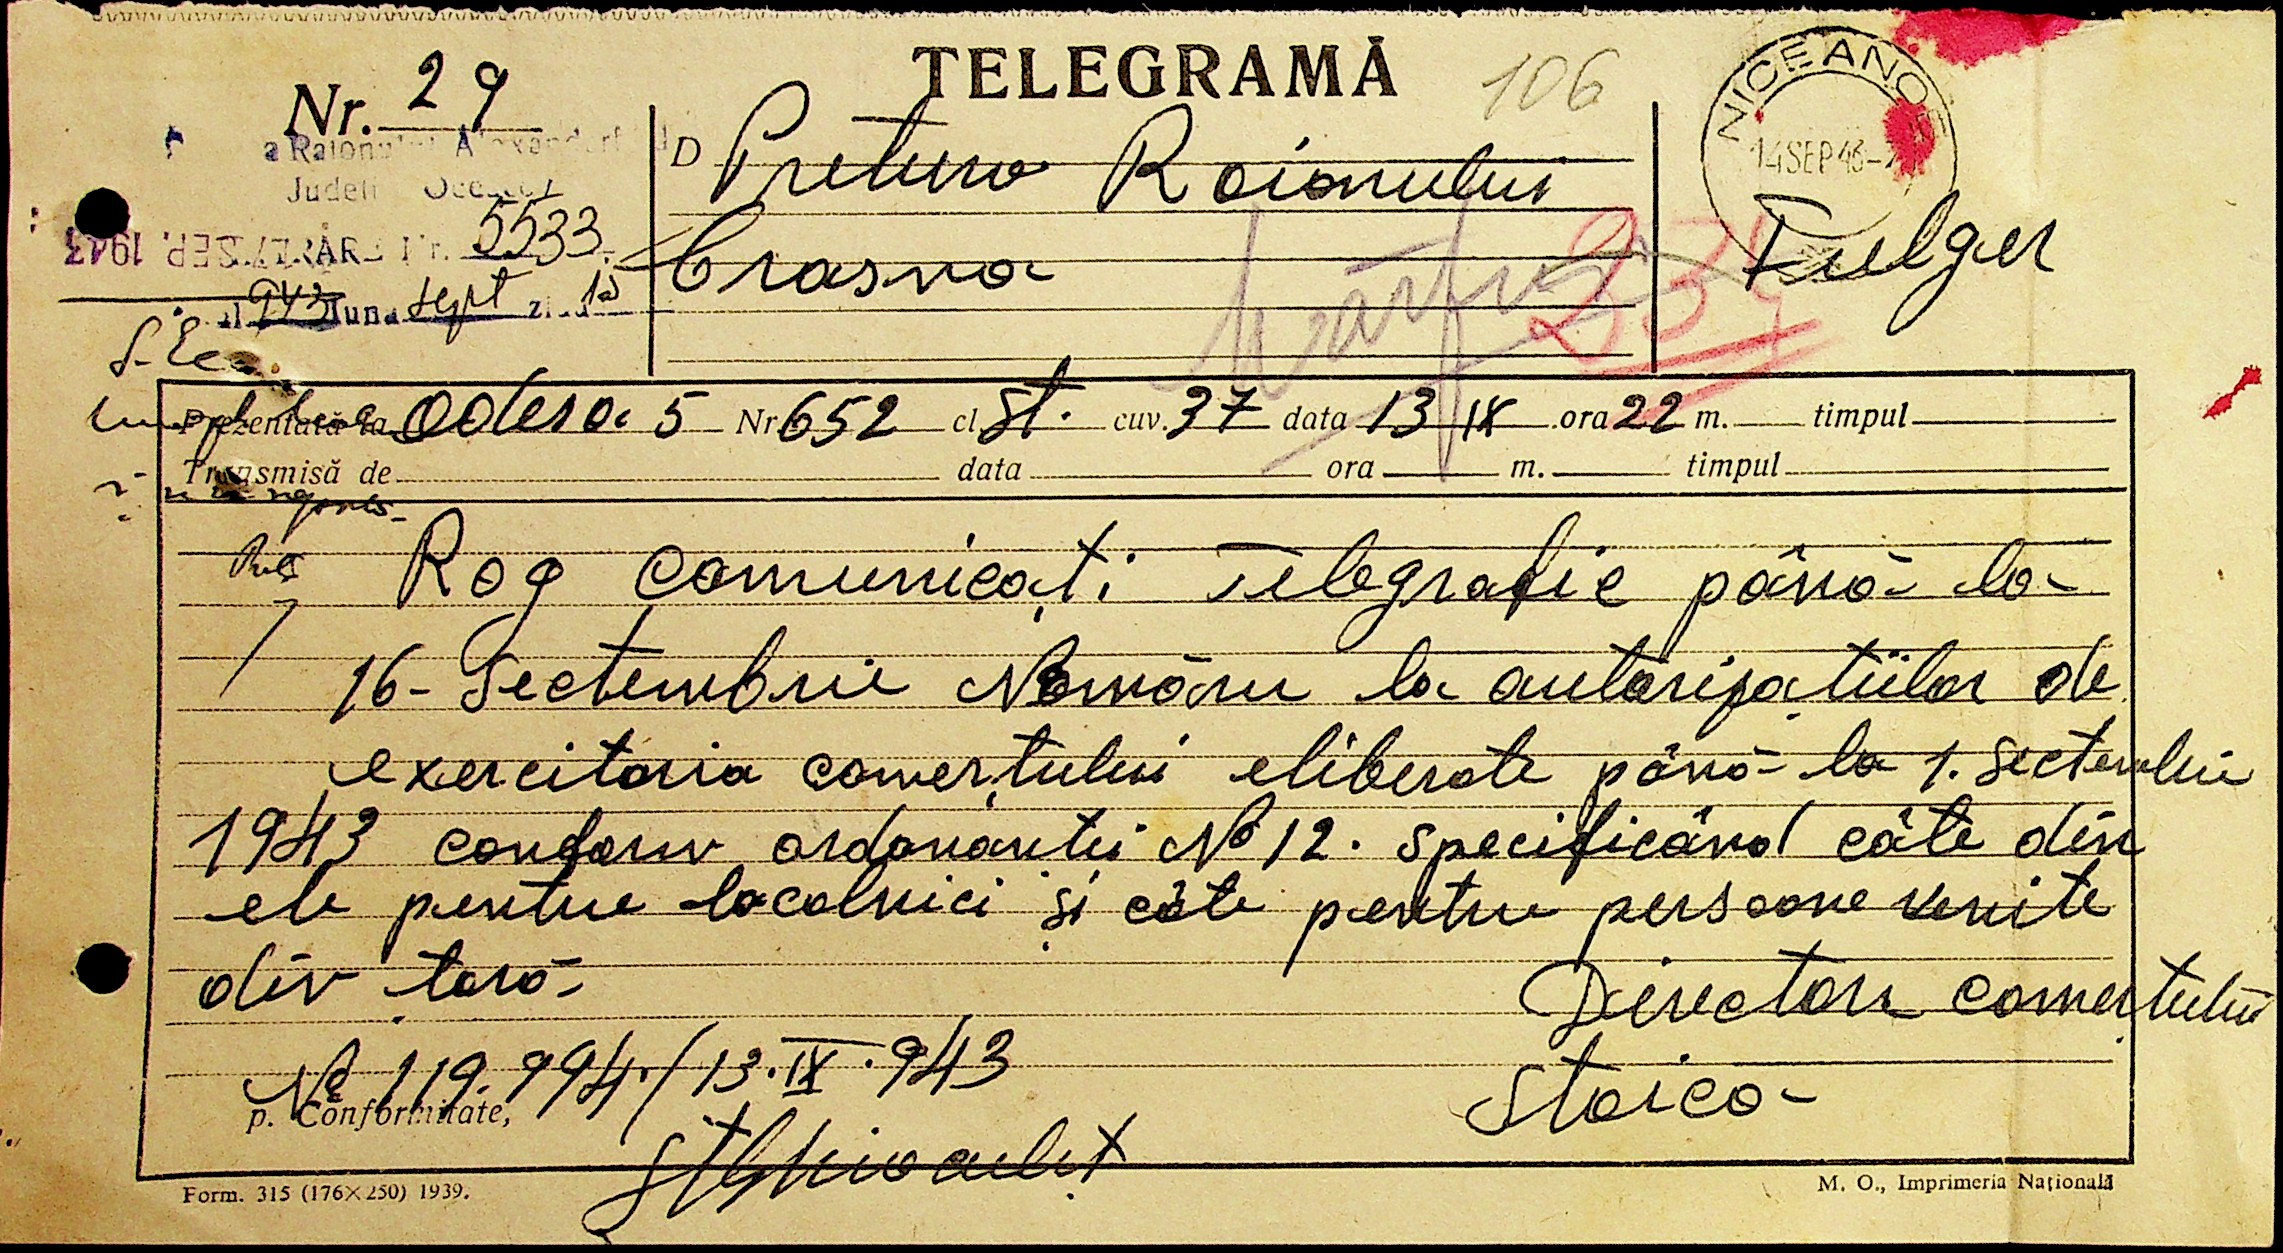 TELEGRAMĂ
106
Nr. 29
a Raionului Alexandrf
Județ
5533
17 SEP. 1943
943 luna sept zi 15
D Pretura Raionului
Crasna
NICEANOE
14 SEP 43
Fulger
234
Prezentată la Odesa 5 Nr 652 cl St. cuv. 37 data 13 IX ora 22 m. timpul
Transmisă de data ora m. timpul
Rog comunicați Telegrafic până la
16- Sectembrie Nomăru la autorizațiilor de
exercitaria comerțului eliberate până la 1. Sectembrie
1943 conform ordonantii No 12. specificând câte din
ele pentru localnici și câte pentru persoane venite
din țară
Director comerțului
No 119.994./13.IX.943
Stoica
p. Conformitate,
Form. 315 (176×250) 1939.
M. O., Imprimeria Națională